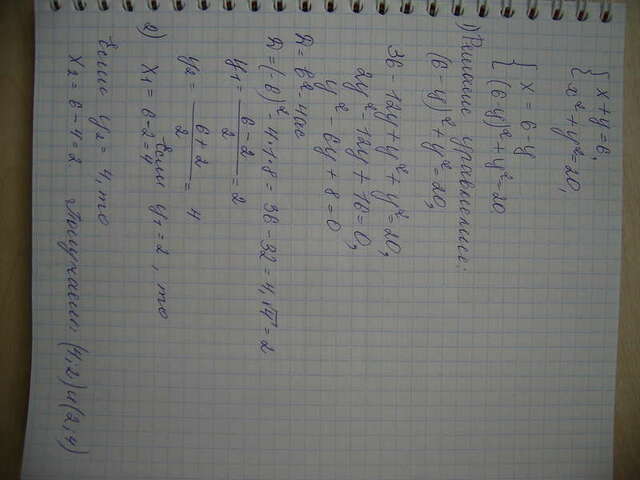 { x + y = 6,
x² + y² = 20,
{ x = 6 - y
(6-y)² + y² = 20
1) Решаем уравнение:
(6 - y)² + y² = 20,
36 - 12y + y² + y² = 20,
2y² - 12y + 16 = 0,
y² - 6y + 8 = 0
D = b² - 4ac
D = (-6)² - 4·1·8 = 36 - 32 = 4, √4 = 2
y₁ = (6 - 2)/2 = 2
y₂ = (6 + 2)/2 = 4
2) Если y₁ = 2, то
x₁ = 6 - 2 = 4
Если y₂ = 4, то
x₂ = 6 - 4 = 2 Получаем: (4; 2) и (2; 4)